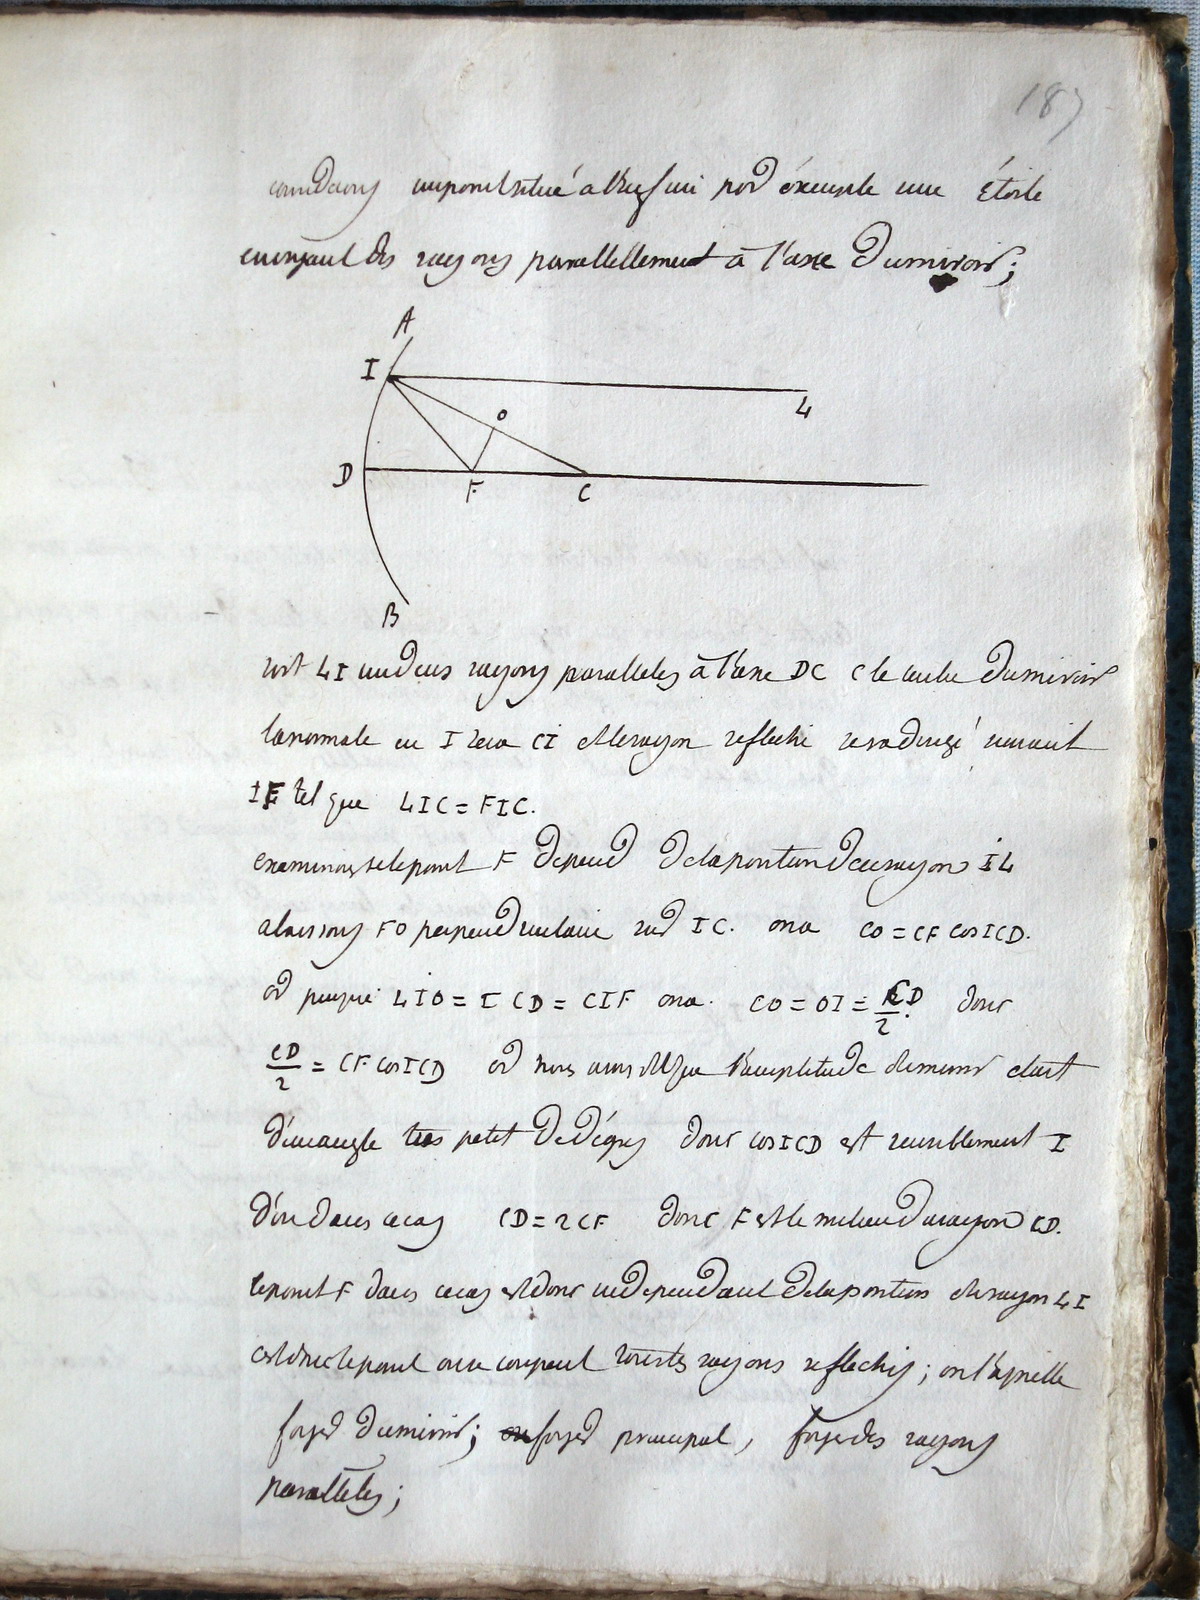 187
considerons un point situé a l'infini par exemple une étoile
envoyant des rayons parallellement à l'axe du miroir;
A
I
L
O
D
F
C
B
soit LI un de ces rayons paralleles à l'axe DC C le centre du miroir
la normale en I sera CI et le rayon reflechi sera dirigé suivant
IF tel que LIC = FIC.
examinons si le point F depend de la position de ce rayon IL
abaissons FO perpendiculaire sur IC. on a CO = CF cos ICD.
or puisque LIO = ICD = CIF on a. CO = OI = CD/2. donc
CD/2 = CF cos ICD or nous avons dit que l'amplitude du miroir etait
d'un angle tres petit de dégrés donc cos ICD est sensiblement I
d'ou dans ce cas CD = 2CF donc F est le milieu du rayon CD.
le point F dans ce cas est donc independant de la position du rayon LI
c'est donc le point ou se coupent tous les rayons reflechis; on l'appelle
foyer du miroir; ou foyer principal, foyer des rayons
paralleles;